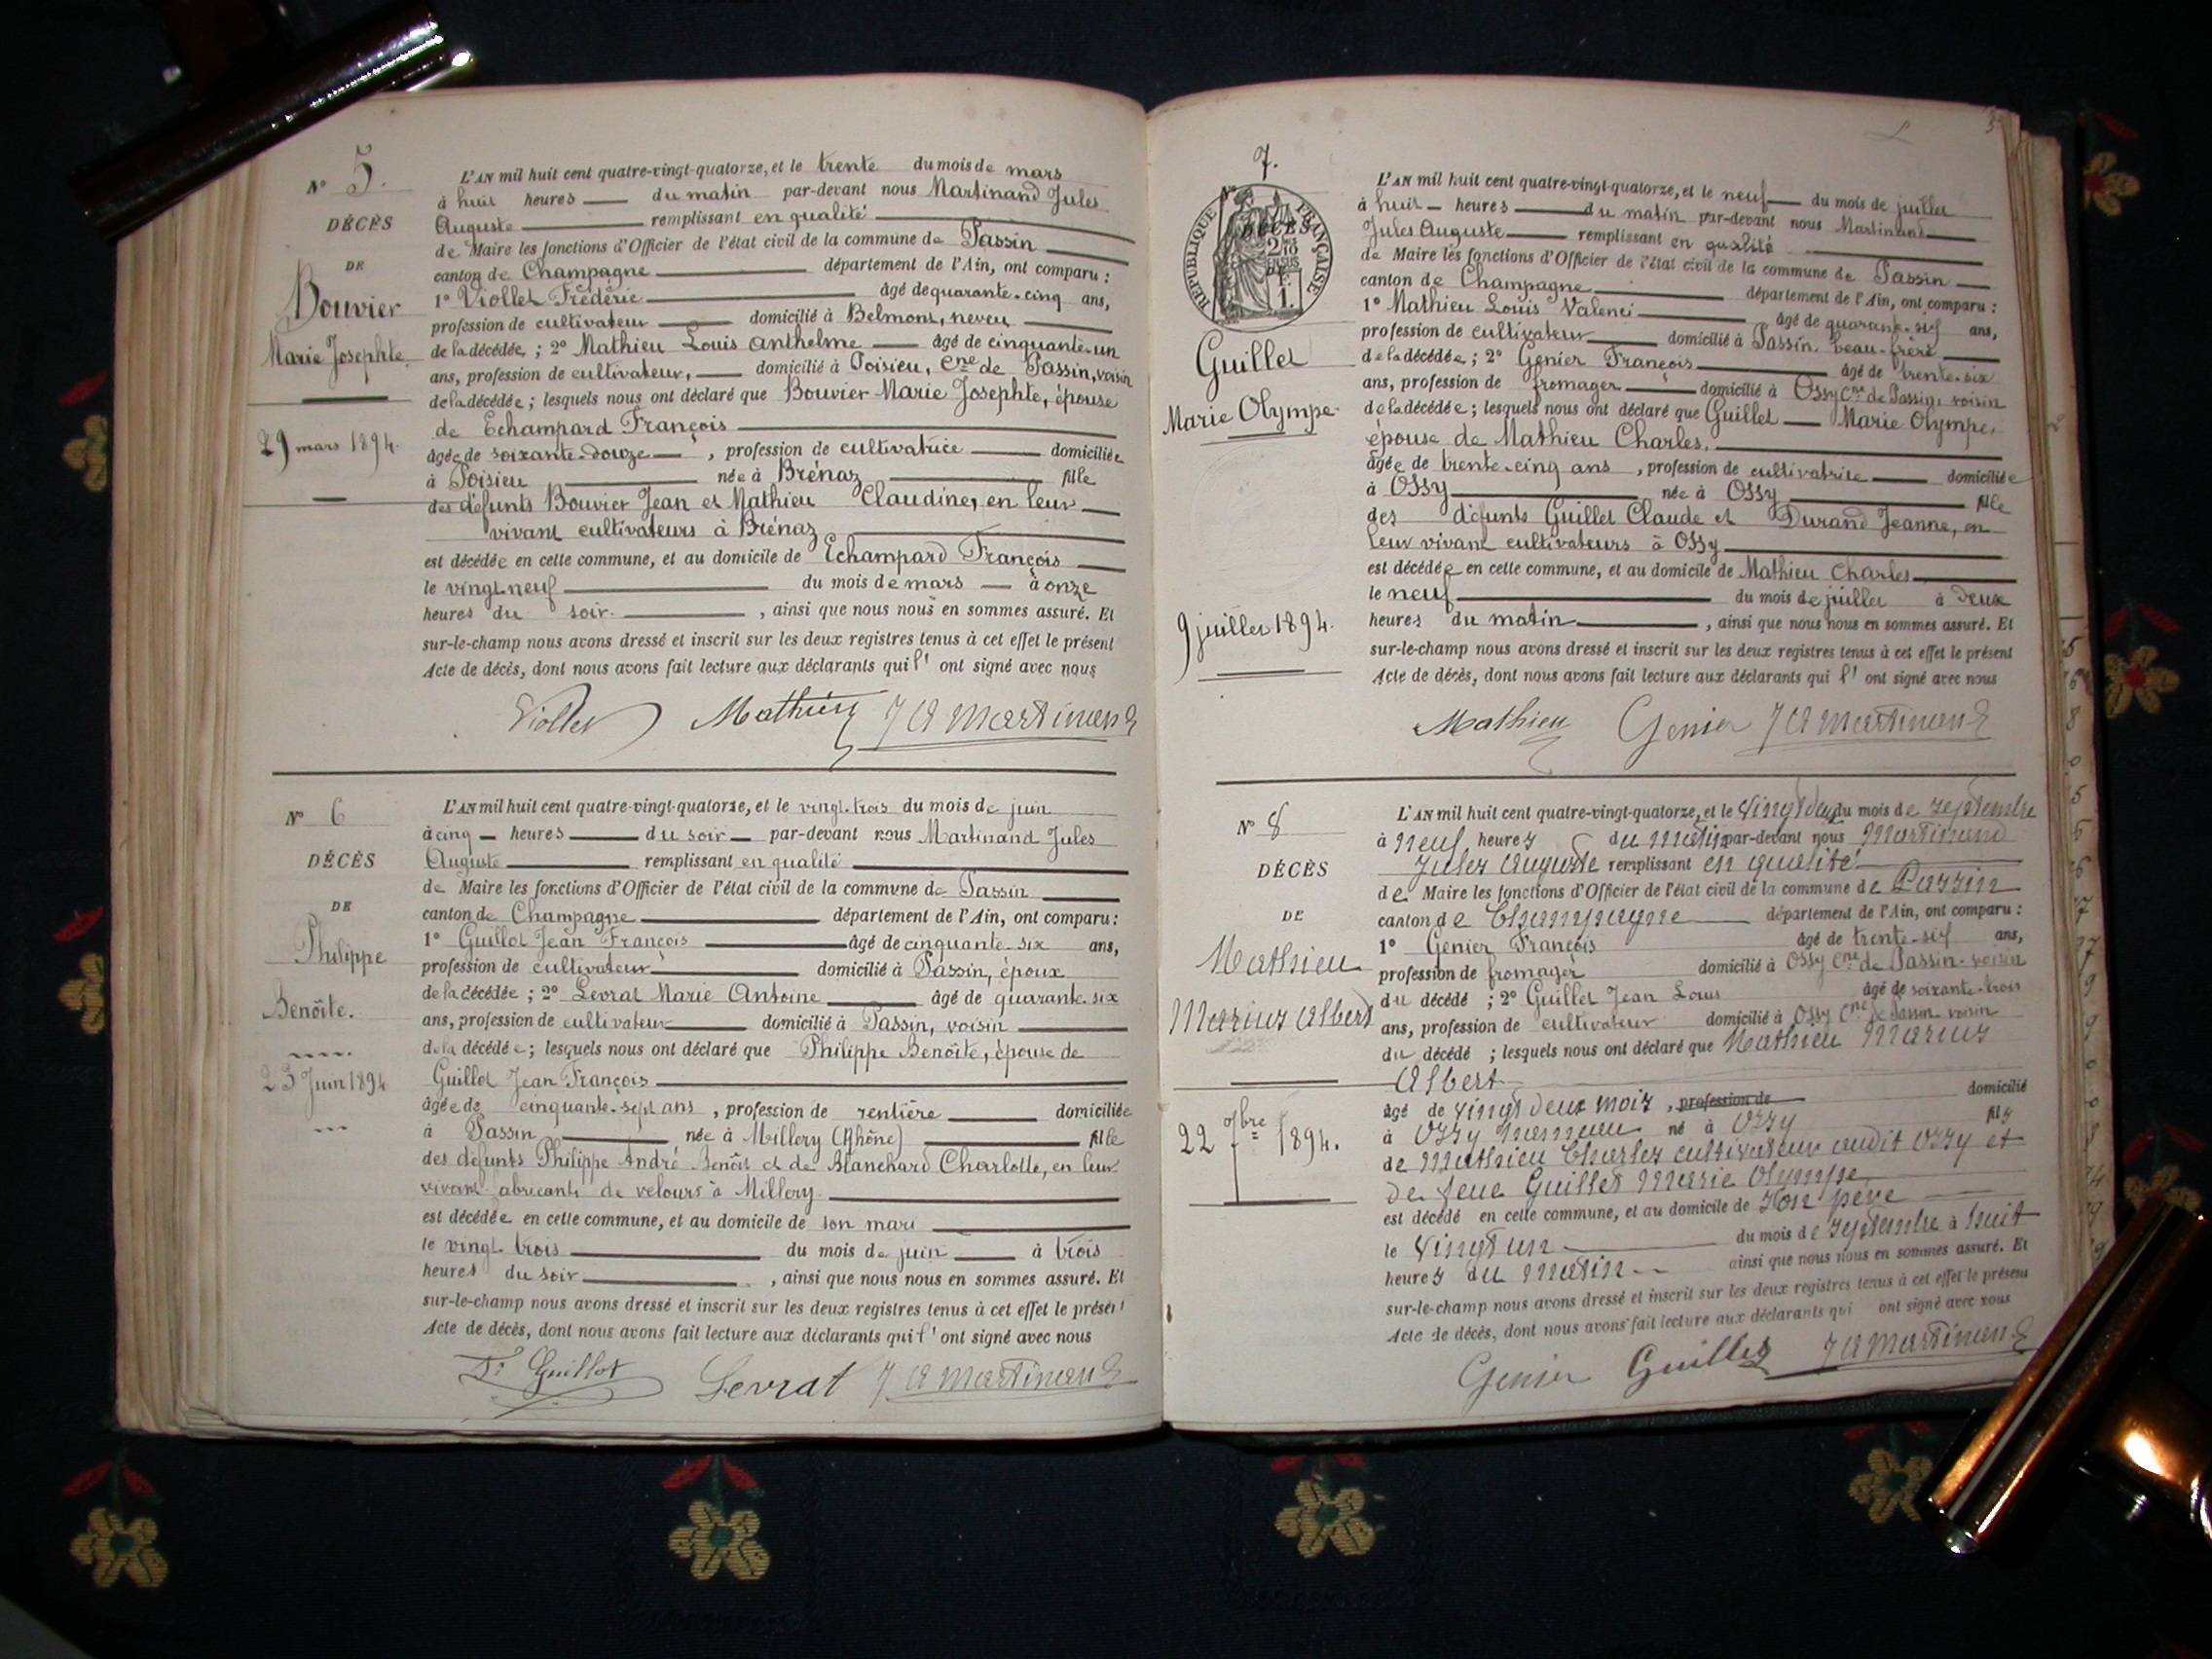 Nº 5.
DÉCÈS
DE
Bouvier
Marie Josephte
29 mars 1894.
L'AN mil huit cent quatre-vingt-quatorze, et le trente du mois de mars
à huit heures du matin par-devant nous Martinand Jules
Auguste remplissant en qualité
de Maire les fonctions d'Officier de l'état civil de la commune de Passin
canton de Champagne département de l'Ain, ont comparu :
1º Viollet Frédéric âgé de quarante-cinq ans,
profession de cultivateur domicilié à Belmont, neveu
de la décédée ; 2º Mathieu Louis Anthelme âgé de cinquante-un
ans, profession de cultivateur, domicilié à Poisieu, Cne de Passin, voisin
de la décédée ; lesquels nous ont déclaré que Bouvier Marie Josephte, épouse
de Echampard François
âgée de soixante-douze , profession de cultivatrice domiciliée
à Poisieu née à Brénaz fille
des défunts Bouvier Jean et Mathieu Claudine, en leur
vivant cultivateurs à Brénaz
est décédée en cette commune, et au domicile de Echampard François
le vingt-neuf du mois de mars à onze
heures du soir , ainsi que nous nous en sommes assuré. Et
sur-le-champ nous avons dressé et inscrit sur les deux registres tenus à cet effet le présent
Acte de décès, dont nous avons fait lecture aux déclarants qui l'ont signé avec nous
Viollet Mathieu J A Martinand
Nº 6
DÉCÈS
DE
Philippe
Benoîte.
23 Juin 1894
L'AN mil huit cent quatre-vingt-quatorze, et le vingt-trois du mois de juin
à cinq heures du soir par-devant nous Martinand Jules
Auguste remplissant en qualité
de Maire les fonctions d'Officier de l'état civil de la commune de Passin
canton de Champagne département de l'Ain, ont comparu :
1º Guillot Jean François âgé de cinquante-six ans,
profession de cultivateur domicilié à Passin, époux
de la décédée ; 2º Levrat Marie Antoine âgé de quarante-six
ans, profession de cultivateur domicilié à Passin, voisin
de la décédée ; lesquels nous ont déclaré que Philippe Benoîte, épouse de
Guillot Jean François
âgée de cinquante-sept ans , profession de rentière domiciliée
à Passin née à Millery (Rhône) fille
des défunts Philippe André Benoît et de Blanchard Charlotte, en leur
vivant abricants de velours à Millery
est décédée en cette commune, et au domicile de son mari
le vingt-trois du mois de juin à trois
heures du soir , ainsi que nous nous en sommes assuré. Et
sur-le-champ nous avons dressé et inscrit sur les deux registres tenus à cet effet le présent
Acte de décès, dont nous avons fait lecture aux déclarants qui l'ont signé avec nous
Guillot Levrat J A Martinand
7.
Nº
RÉPUBLIQUE FRANÇAISE
DÉCÈS
Guillet
Marie Olympe
9 juillet 1894.
L'AN mil huit cent quatre-vingt-quatorze, et le neuf du mois de juillet
à huit heures du matin par-devant nous Martinand
Jules Auguste remplissant en qualité
de Maire les fonctions d'Officier de l'état civil de la commune de Passin
canton de Champagne département de l'Ain, ont comparu :
1º Mathieu Louis Valenci âgé de quarante-six ans,
profession de cultivateur domicilié à Passin, beau-frère
de la décédée ; 2º Genier François âgé de trente-six
ans, profession de fromager domicilié à Ossy Cne de Passin, voisin
de la décédée ; lesquels nous ont déclaré que Guillet Marie Olympe,
épouse de Mathieu Charles,
âgée de trente-cinq ans , profession de cultivatrice domiciliée
à Ossy née à Ossy fille
des défunts Guillet Claude et Durand Jeanne, en
leur vivant cultivateurs à Ossy
est décédée en cette commune, et au domicile de Mathieu Charles
le neuf du mois de juillet à deux
heures du matin , ainsi que nous nous en sommes assuré. Et
sur-le-champ nous avons dressé et inscrit sur les deux registres tenus à cet effet le présent
Acte de décès, dont nous avons fait lecture aux déclarants qui l'ont signé avec nous
Mathieu Genier J A Martinand
Nº 8
DÉCÈS
DE
Mathieu
Marius Albert
22 7bre 1894.
L'AN mil huit cent quatre-vingt-quatorze, et le vingt deux du mois de septembre
à neuf heures du matin par-devant nous Martinand
Jules Auguste remplissant en qualité
de Maire les fonctions d'Officier de l'état civil de la commune de Passin
canton de Champagne département de l'Ain, ont comparu :
1º Genier François âgé de trente-six ans,
profession de fromager domicilié à Ossy Cne de Passin voisin
du décédé ; 2º Guillet Jean Louis âgé de soixante-trois
ans, profession de cultivateur domicilié à Ossy Cne de Passin voisin
du décédé ; lesquels nous ont déclaré que Mathieu Marius
Albert
âgé de vingt deux mois , profession de domicilié
à Ossy né à Ossy fils
de Mathieu Charles cultivateur audit Ossy et
de feue Guillet Marie Olympe
est décédé en cette commune, et au domicile de son père
le vingt un du mois de septembre à huit
heures du matin ainsi que nous nous en sommes assuré. Et
sur-le-champ nous avons dressé et inscrit sur les deux registres tenus à cet effet le présent
Acte de décès, dont nous avons fait lecture aux déclarants qui ont signé avec nous
Genier Guillet J A Martinand